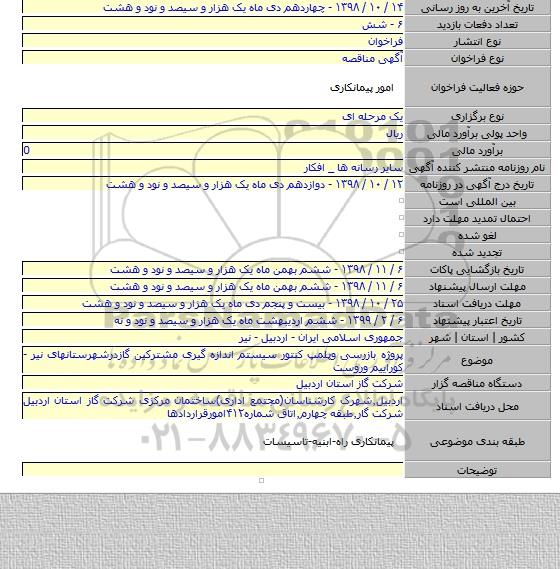 تاریخ آخرین به روز رسانی ۱۴ / ۱۰ / ۱۳۹۸ - چهاردهم دی ماه یک هزار و سیصد و نود و هشت
تعداد دفعات بازدید ۶ - شش
نوع انتشار فراخوان
نوع فراخوان آگهی مناقصه
حوزه فعالیت فراخوان امور پیمانکاری
نوع برگزاری یک مرحله ای
واحد پولی برآورد مالی ریال
برآورد مالی 0
نام روزنامه منتشر کننده آگهی سایر رسانه ها _ افکار
تاریخ درج آگهی در روزنامه ۱۲ / ۱۰ / ۱۳۹۸ - دوازدهم دی ماه یک هزار و سیصد و نود و هشت
بین المللی است
احتمال تمدید مهلت دارد
لغو شده
تجدید شده
تاریخ بازگشایی پاکات ۶ / ۱۱ / ۱۳۹۸ - ششم بهمن ماه یک هزار و سیصد و نود و هشت
مهلت ارسال پیشنهاد ۶ / ۱۱ / ۱۳۹۸ - ششم بهمن ماه یک هزار و سیصد و نود و هشت
مهلت دریافت اسناد ۲۵ / ۱۰ / ۱۳۹۸ - بیست و پنجم دی ماه یک هزار و سیصد و نود و هشت
تاریخ اعتبار پیشنهاد ۶ / ۲ / ۱۳۹۹ - ششم اردیبهشت ماه یک هزار و سیصد و نود و نه
کشور | استان | شهر جمهوری اسلامی ایران - اردبیل - نیر
موضوع پروژه بازرسی وپلمپ کنتور سیستم اندازه گیری مشترکین گازدرشهرستانهای نیر -
کوراییم وروست
دستگاه مناقصه گزار شرکت گاز استان اردبیل
محل دریافت اسناد اردبیل,شهرک کارشناسان(مجتمع اداری)ساختمان مرکزی شرکت گاز استان اردبیل
شرکت گاز,طبقه چهارم,اتاق شماره۴۱۲امورقراردادها
طبقه بندی موضوعی پیمانکاری راه-ابنیه-تاسیسات
توضیحات
۰۲۱-۸۸۳۴۹۶۷۰-۵